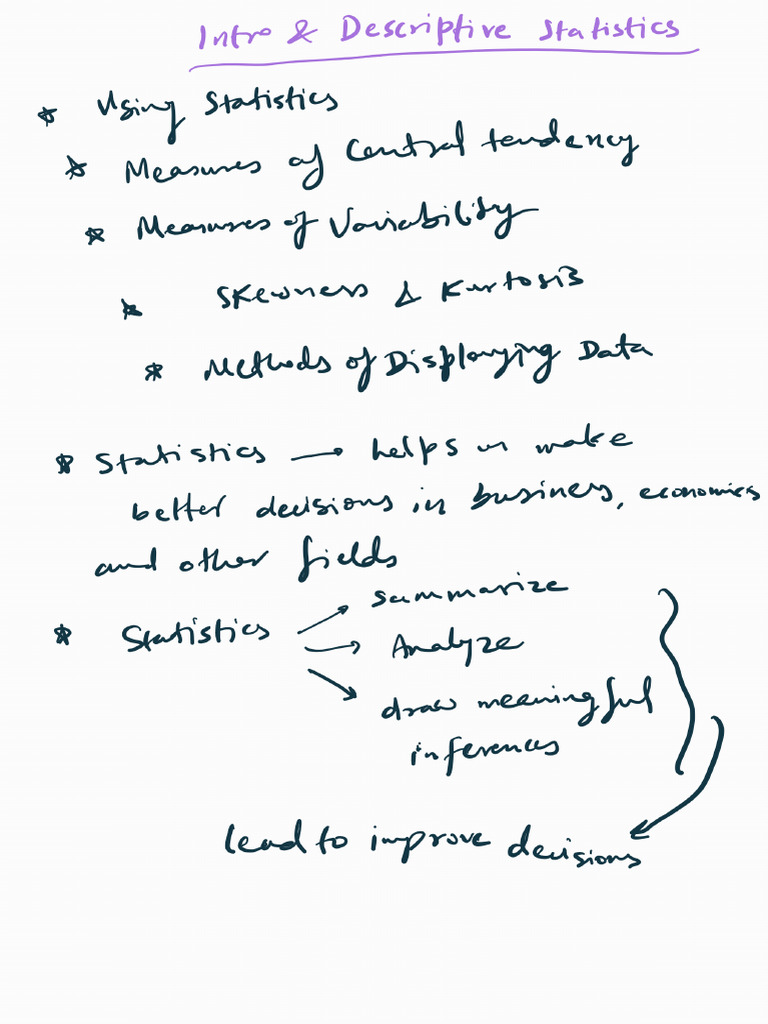 Intro & Descriptive Statistics
* Using Statistics
* Measures of Central tendency
* Measures of Variability
* Skewness & Kurtosis
* Methods of Displaying Data
* Statistics → helps us make
better decisions in business, economics
and other fields
* Statistics → summarize
→ Analyze
→ draw meaningful
inferences
lead to improve decisions